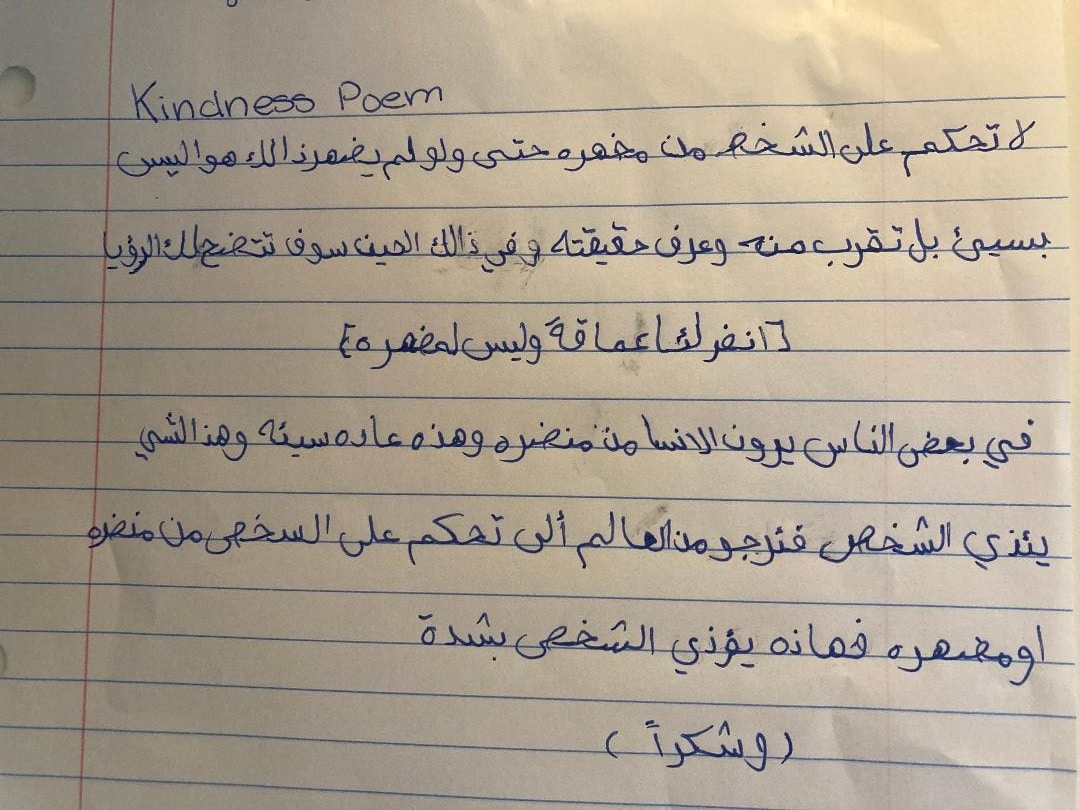 Kindness Poem
لا تحكم على الشخص من مضهره حتى ولو لم يضهر ذالك هو اليس
بسيئ بل تقرب منه وعرف حقيقته وفي ذالك الحين سوف تتضح لك الرؤيا
[انضر لئاعماقةً وليس لمضهره]
في بعض الناس يرون الانسا من منضره وهذه عاده سيئه وهذا الشي
يئذي الشخص فنرجو من العالم ألى تحكم على السخص من منضره
او مضهره فهاذه يؤذي الشخص بشدة
(وشكراً)